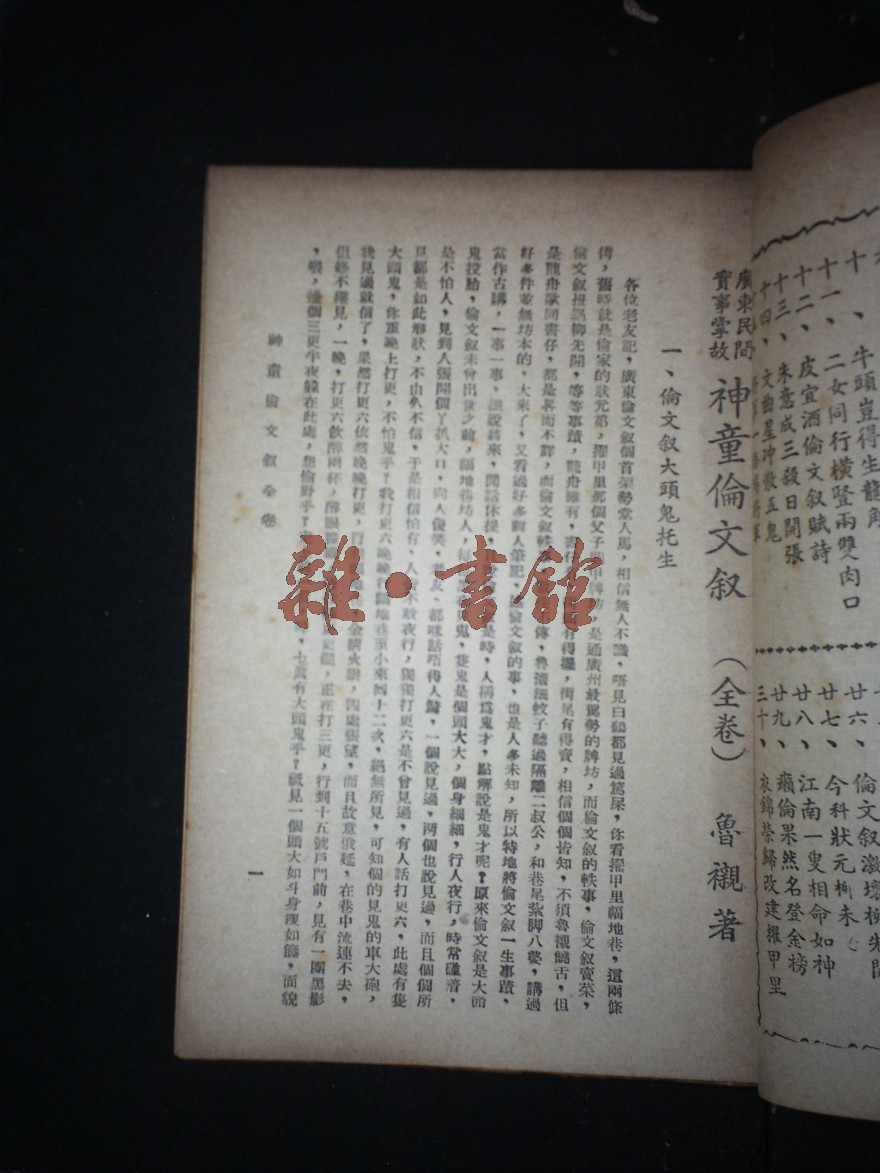 十、牛頭豈得生龍角
十一、二女同行橫豎兩雙肉口
十二、皮宜酒倫文叙賦詩
十三、朱意成三殺日開張
十四、文曲星冲散五鬼
廿六、倫文叙激壞柳先開
廿七、今科狀元柳未
廿八、江南一叟相命如神
廿九、癩倫果然名登金榜
三十、衣錦榮歸改建擢甲里
廣東民間
實事掌故
神童倫文叙 （全卷） 魯襯著
一、倫文叙大頭鬼托生
各位老友記，廣東倫文叙個首架勢堂人馬，相信無人不識，唔見白鶴都見過篤屎，你看擢甲里福地巷，這兩條
街，舊時就是倫家的狀元第，擢甲里那個父子 甲牌坊，是通廣州最駕勢的牌坊，而倫文叙的軼事，倫文叙賣菜，
倫文叙扭誤柳先開，等等事蹟，龍舟雖有，書仔 有得擺，街尾有得賣，相信個個皆知，不須魯襯饒舌，但
是龍舟歌同書仔，都是畧而不詳，而倫文叙軼 傳，魯襯細蚊子聽過隔離二叔公，和巷尾紮脚八婆，講過
好多件並無坊本的，大來了，又看過好多前人筆記， 倫文叙的事，也是人多未知，所以特地將倫文叙一生事蹟，
當作古講，一事一事，細說將來，閒話休提， 是時，人稱為鬼才，點解說是鬼才呢？原來倫文叙是大頭
鬼投胎，倫文叙未曾出世之前，福地巷坊人， 鬼，隻鬼是個頭大大，個身細細，行人夜行，時常碰着，
是不怕人，見到人張開個丫扒大口，向人傻笑， 友，都咪話唔得人驚，一個說見過，两個也說見過，而且個個所
見都是如此形狀，不由人不信，于是相信怕有，人 不敢夜行，獨獨打更六是不曾見過，有人話打更六，此處有隻
大頭鬼，你重晚上打更，不怕鬼乎？我打更六晚晚行福地巷至小東西十二次，絕無所見，可知個的見鬼的車大砲，
我見過就信了，果然打更六依然晚晚打更，行 金睛火眼，四處張望，而且故意俄延，在巷中流連不去，
但終不獲見，一晚，打更六飲醉兩杯，醉眼 更鑼，正在打三更，行到十五號戶門前，見有一團黑影
，喂，邊個三更半夜躲在此處，想偷野乎？ ，乜真有大頭鬼乎？祇見一個頭大如斗身瘦如籐，面貌
神童倫文叙全卷
一
雜·書館